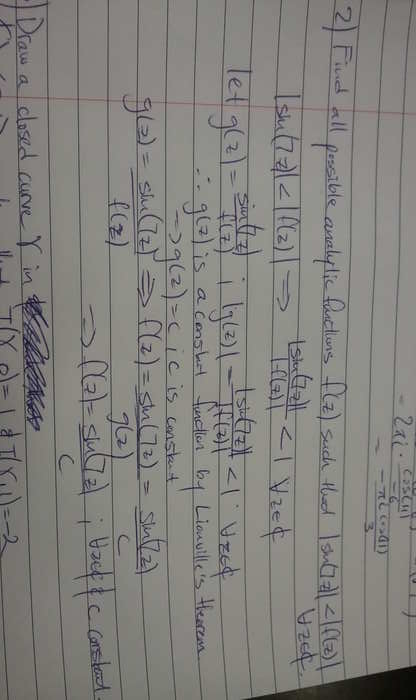 = 2πi · cos(11)
-6
= -πi cos(11)
3
2) Find all possible analytic functions f(z) such that |sin(7z)| < |f(z)|
∀z∈ℂ.
|sin(7z)| < |f(z)| ⇒ |sin(7z)| / |f(z)| < 1 ∀z∈ℂ
let g(z) = sin(7z) / f(z) ; |g(z)| = |sin(7z)| / |f(z)| < 1 ; ∀z∈ℂ
∴ g(z) is a constant function by Liouville's theorem
⇒ g(z) = c ; c is constant
g(z) = sin(7z) / f(z) ⇒ f(z) = sin(7z) / g(z) = sin(7z) / c
⇒ f(z) = sin(7z) / c ; ∀z∈ℂ & c constant
Draw a closed curve γ in
that I(γ,0) = 1 & I(γ,1) = -2